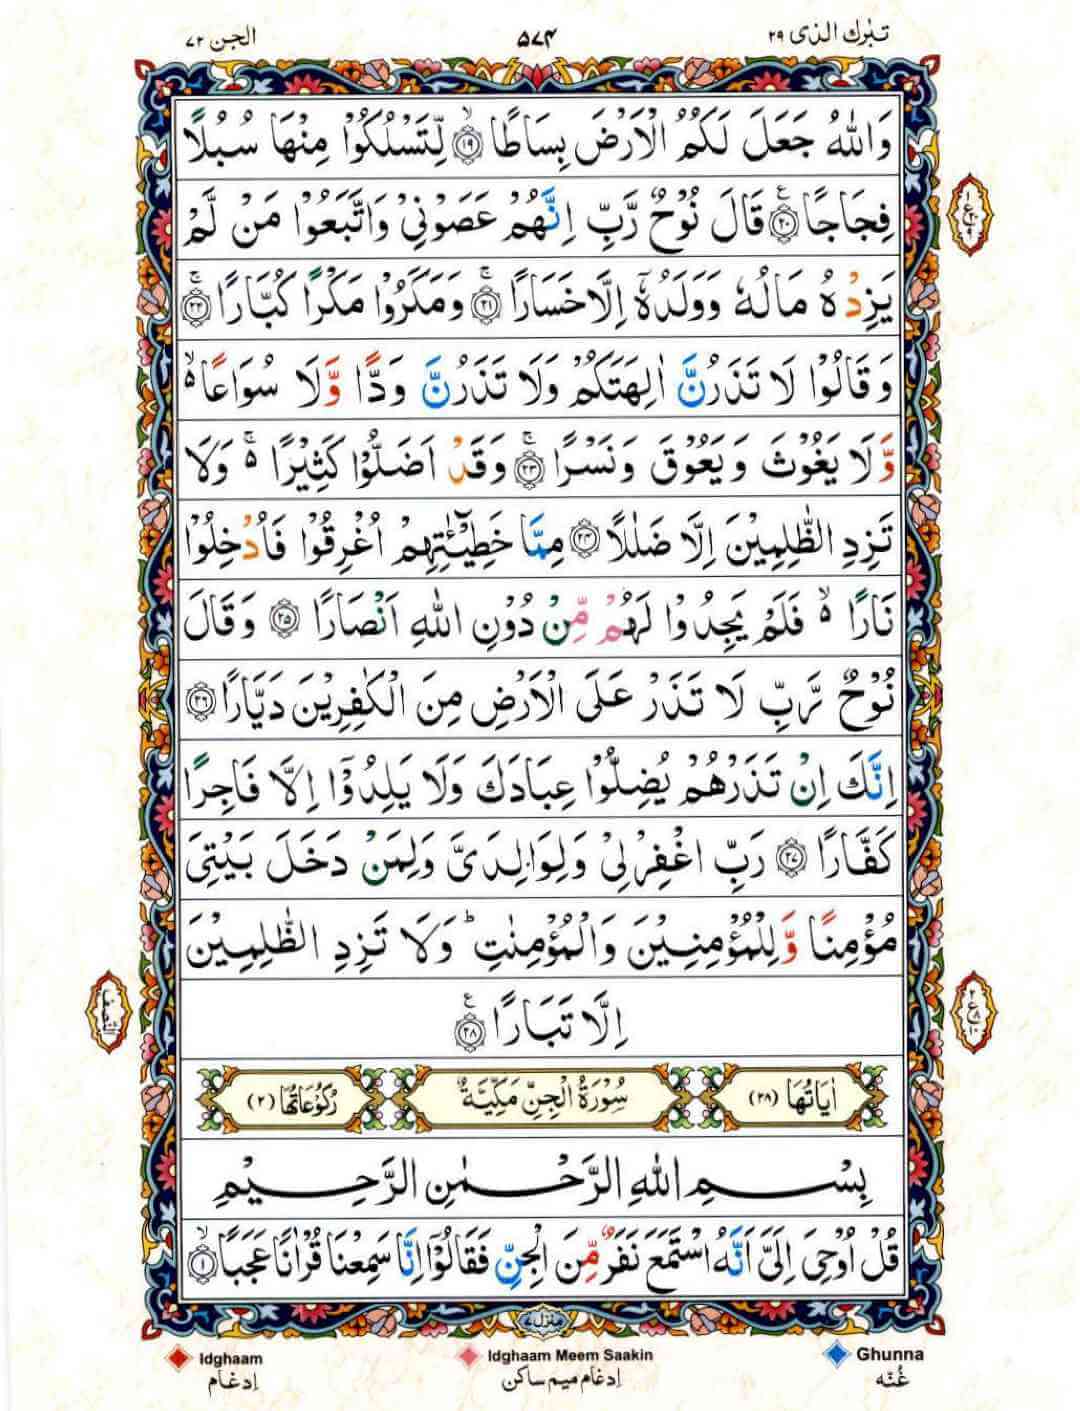 تبٰرك الذی ٢٩
٥٧٤
الجن ٧٢
وَاللّٰهُ جَعَلَ لَكُمُ الْاَرْضَ بِسَاطًا ۙ﴿١٩﴾ لِّتَسْلُكُوْا مِنْهَا سُبُلًا
فِجَاجًا ﴿٢٠﴾ ع قَالَ نُوْحٌ رَّبِّ اِنَّهُمْ عَصَوْنِیْ وَاتَّبَعُوْا مَنْ لَّمْ
یَزِدْهُ مَالُهٗ وَوَلَدُهٗۤ اِلَّا خَسَارًا ۚ﴿٢١﴾ وَمَكَرُوْا مَكْرًا كُبَّارًا ۚ﴿٢٢﴾
وَقَالُوْا لَا تَذَرُنَّ اٰلِهَتَكُمْ وَلَا تَذَرُنَّ وَدًّا وَّلَا سُوَاعًا ۙ٥
وَّلَا یَغُوْثَ وَیَعُوْقَ وَنَسْرًا ۚ﴿٢٣﴾ وَقَدْ اَضَلُّوْا كَثِیْرًا ۚ٥ وَلَا
تَزِدِ الظّٰلِمِیْنَ اِلَّا ضَلٰلًا ﴿٢٤﴾ مِمَّا خَطِیْٓـٰٔتِهِمْ اُغْرِقُوْا فَاُدْخِلُوْا
نَارًا ۙ٥ فَلَمْ یَجِدُوْا لَهُمْ مِّنْ دُوْنِ اللّٰهِ اَنْصَارًا ﴿٢٥﴾ وَقَالَ
نُوْحٌ رَّبِّ لَا تَذَرْ عَلَی الْاَرْضِ مِنَ الْكٰفِرِیْنَ دَیَّارًا ﴿٢٦﴾
اِنَّكَ اِنْ تَذَرْهُمْ یُضِلُّوْا عِبَادَكَ وَلَا یَلِدُوْۤا اِلَّا فَاجِرًا
كَفَّارًا ﴿٢٧﴾ رَبِّ اغْفِرْ لِیْ وَلِوَالِدَیَّ وَلِمَنْ دَخَلَ بَیْتِیَ
مُؤْمِنًا وَّلِلْمُؤْمِنِیْنَ وَالْمُؤْمِنٰتِ ؕ وَلَا تَزِدِ الظّٰلِمِیْنَ
اِلَّا تَبَارًا ﴿٢٨﴾ ع
النصف
اٰیَاتُهَا (٢٨)
سُوْرَةُ الْجِنِّ مَكِّیَّةٌ
رُكُوْعَاتُهَا (٢)
بِسْمِ اللّٰهِ الرَّحْمٰنِ الرَّحِیْمِ
قُلْ اُوْحِیَ اِلَیَّ اَنَّهُ اسْتَمَعَ نَفَرٌ مِّنَ الْجِنِّ فَقَالُوْۤا اِنَّا سَمِعْنَا قُرْاٰنًا عَجَبًا ۙ﴿١﴾
منزل ٧
Idghaam
Idghaam Meem Saakin
Ghunna
اِدغام
اِدغام میم ساکن
غُنّه